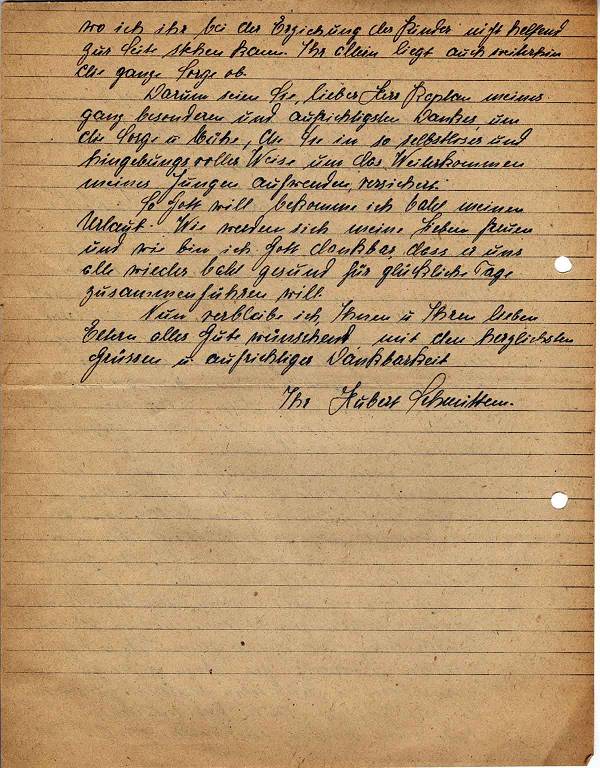 wo ich ihr bei der Erziehung der Kinder nicht helfend
zur Seite stehen kann. Ihr allein liegt auch weiterhin
die ganze Sorge ob.
Darum seien Sie, lieber Herr Kaplan meines
ganz besonderen und aufrichtigsten Dankes um
die Sorge u. Mühe, die Sie in so selbstloser und
hingebungsvoller Weise um das Weiterkommen
meines Jungen aufwenden, versichert.
So Gott will bekomme ich bald meinen
Urlaub. Wie werden sich meine Lieben freuen
und wie bin ich Gott dankbar, dass er uns
alle wieder bald gesund für glückliche Tage
zusammenführen will.
Nun verbleibe ich Ihnen u. Ihren lieben
Eltern alles Gute wünschend mit den herzlichsten
Grüssen u. aufrichtiger Dankbarkeit
Ihr Hubert Schmittem.